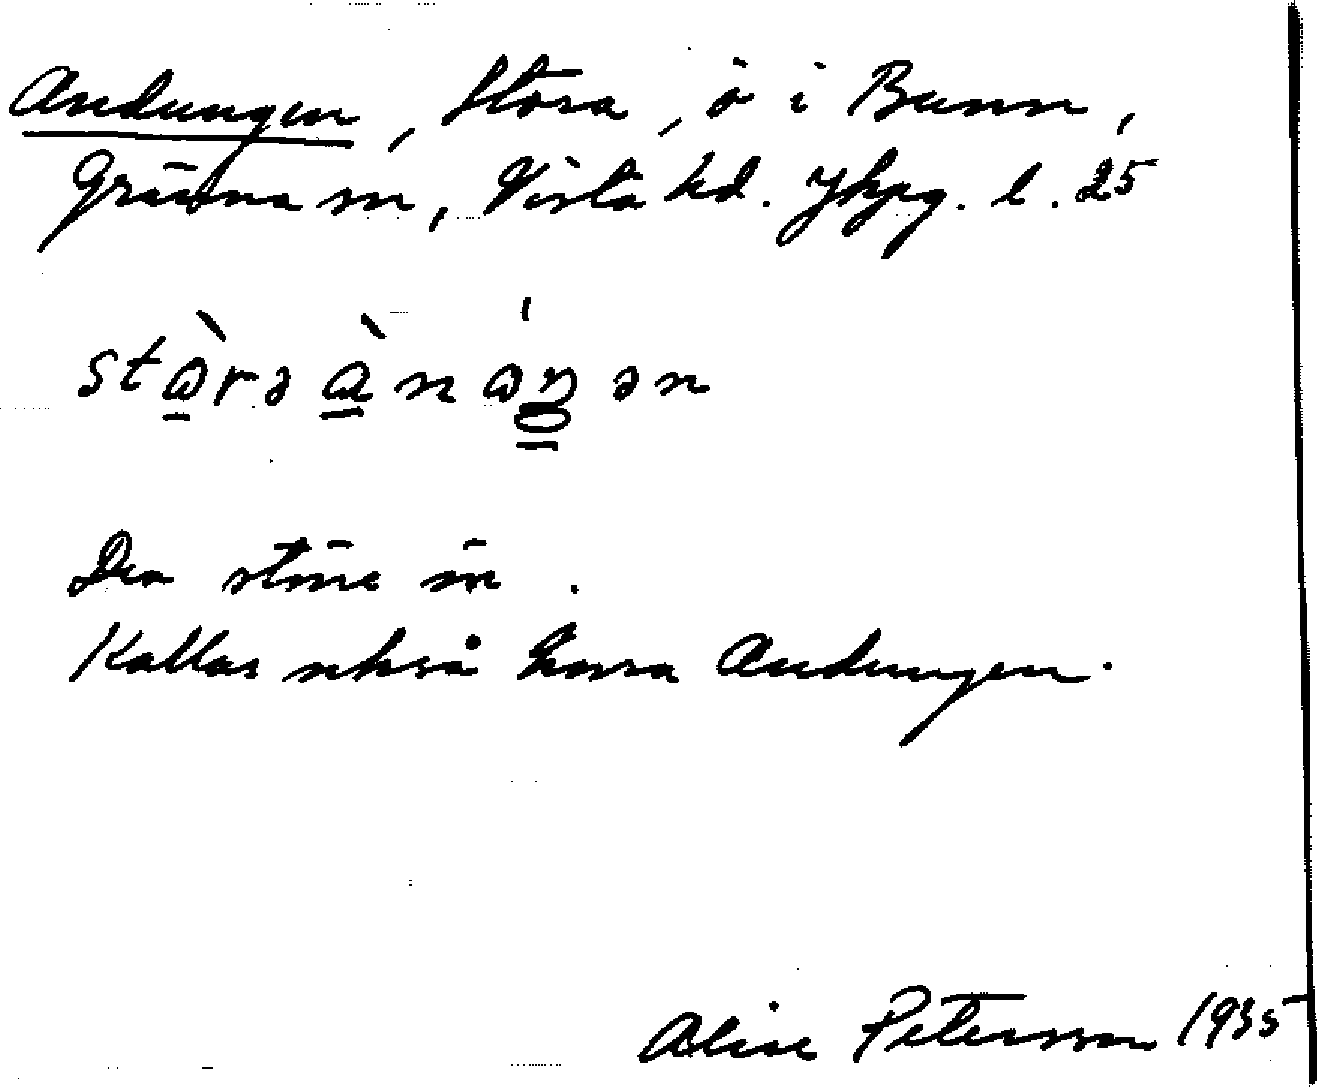 Andungen, Stora, ö i Bunn,
Gränna sn, Vista hd. Jkpg. l. 25
Den större ön.
Kallas också bara Andungen.
Alice Petersson 1935